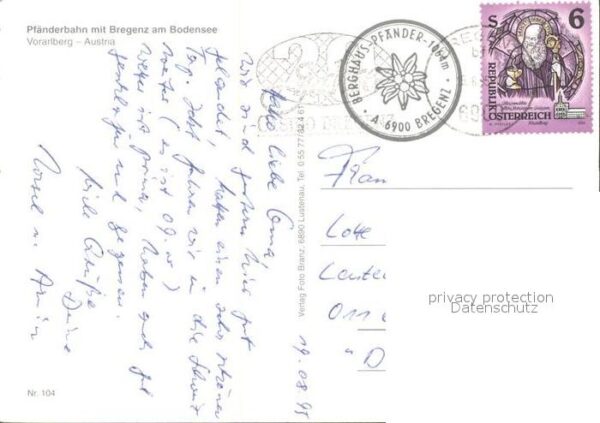 Pfänderbahn mit Bregenz am Bodensee
Vorarlberg – Austria
19.08.95
Hallo liebe Oma,
wir sind gestern hier gut
gelandet, hatten einen sehr schönen
Tag. Jetzt fahren wir in die Schweiz
weiter (es ist 09.00)
Wetter ist prima, haben auch gut
geschlafen und gegessen.
Viele Grüße
Deine
u. Armin
Nr. 104
Verlag Foto Branz, 6890 Lustenau, Tel. 0 55 77/82 4 61
BERGHAUS-PFÄNDER-1064m
A 6900 BREGENZ
S 6
REPUBLIK
ÖSTERREICH
Frau
Lotte
011
"D
privacy protection
Datenschutz